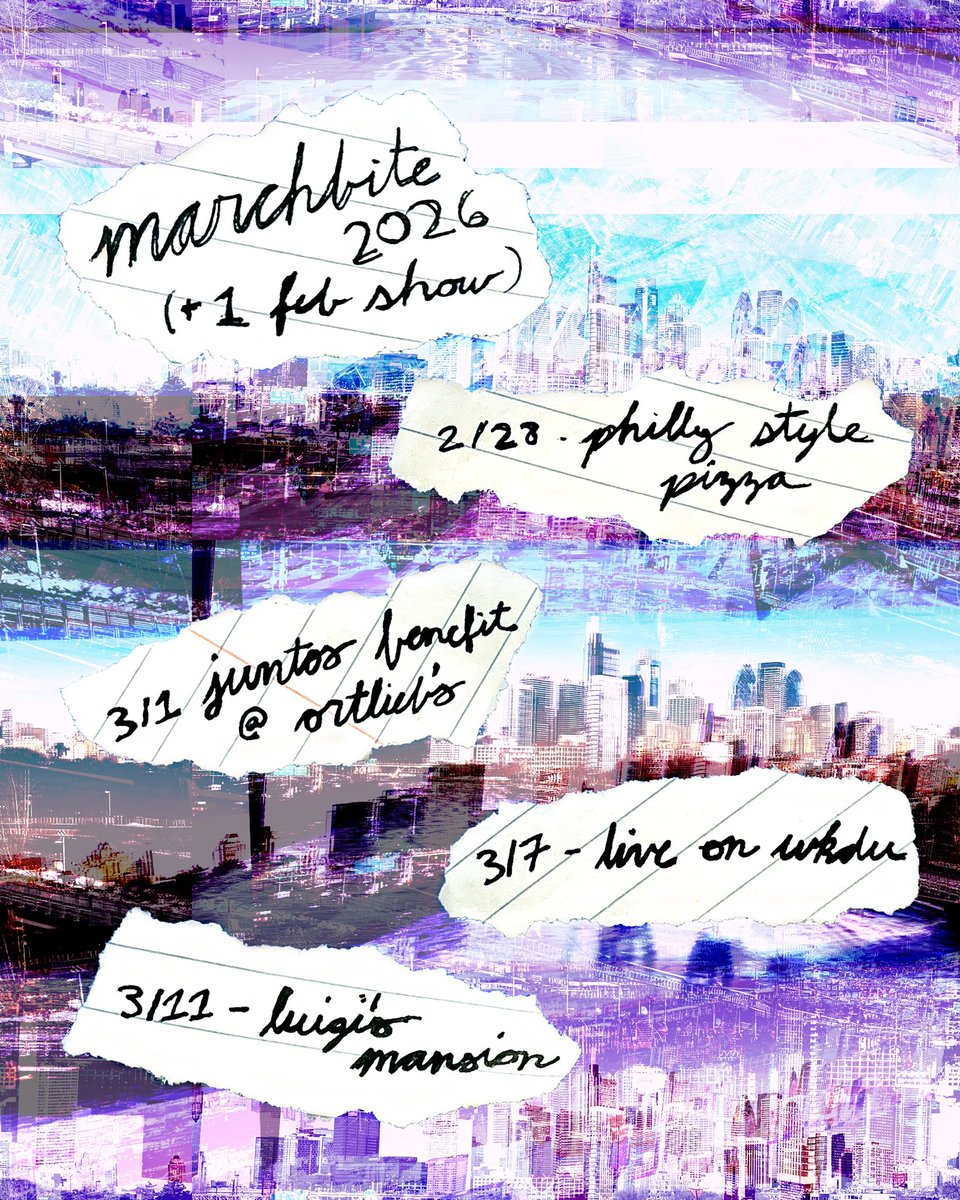 marchbite
2026
(+ 1 feb show)
2/28 - philly style
pizza
3/1 juntos benefit
@ ortlieb's
3/7 - live on wkdu
3/11 - luigi's
mansion